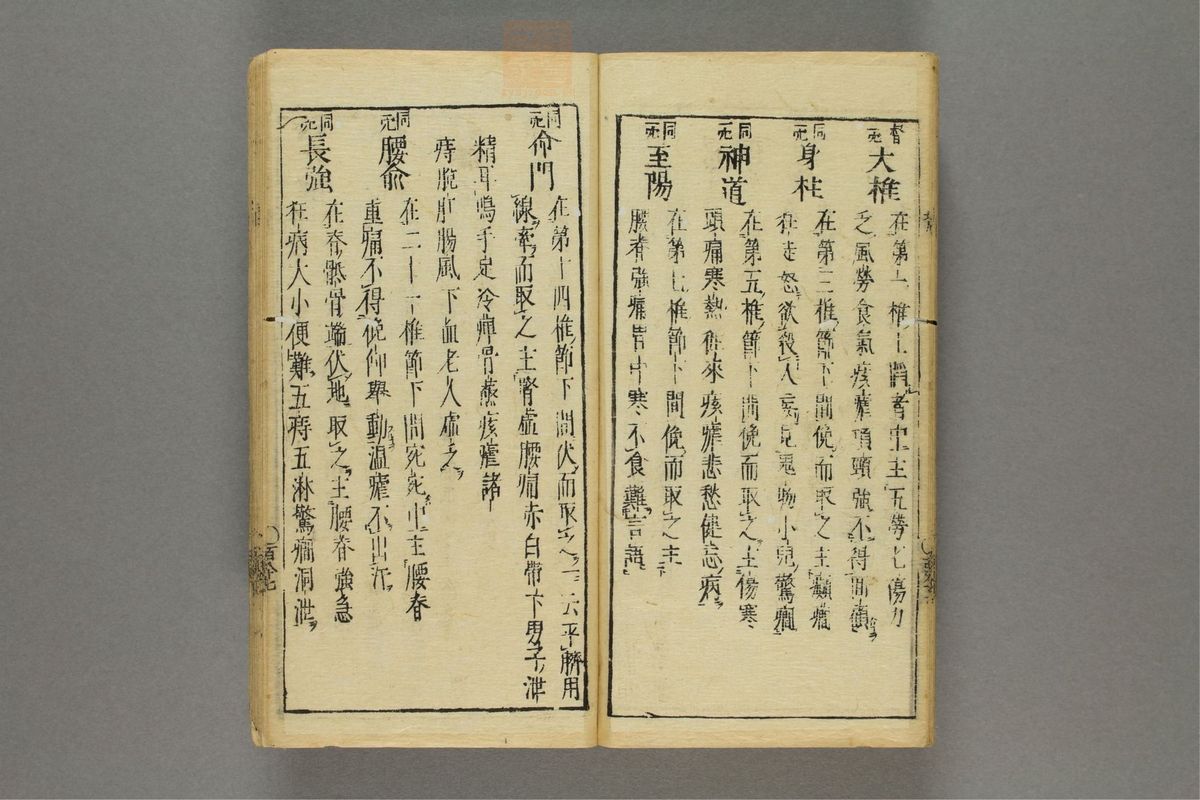 督 大椎
在第一椎上陷者中主五勞七傷力
乏風勞食氣痎瘧項頸強不得回顧
同 身柱
在第三椎節下間俛而取之主癲癇
狂走怒欲殺人妄見鬼物小兒驚癇
同 神道
在第五椎節下間俛而取之主傷寒
頭痛寒熱往來痎瘧悲愁健忘病
同 至陽
在第七椎節下間俛而取之主
腰脊強痛胃中寒不食難言語
同 命門
在第十四椎節下間伏而取之一云平臍用
線牽而取之主腎虛腰痛赤白帶下男子泄
精耳鳴手足冷痺骨蒸痎瘧諸
痔脫肛腸風下血老人虛乏
同 腰俞
在二十一椎節下間宛宛中主腰脊
重痛不得俛仰舉動溫瘧不出汗
同 長強
在脊骶骨端伏地取之主腰脊強急
狂病大小便難五痔五淋驚癇洞泄